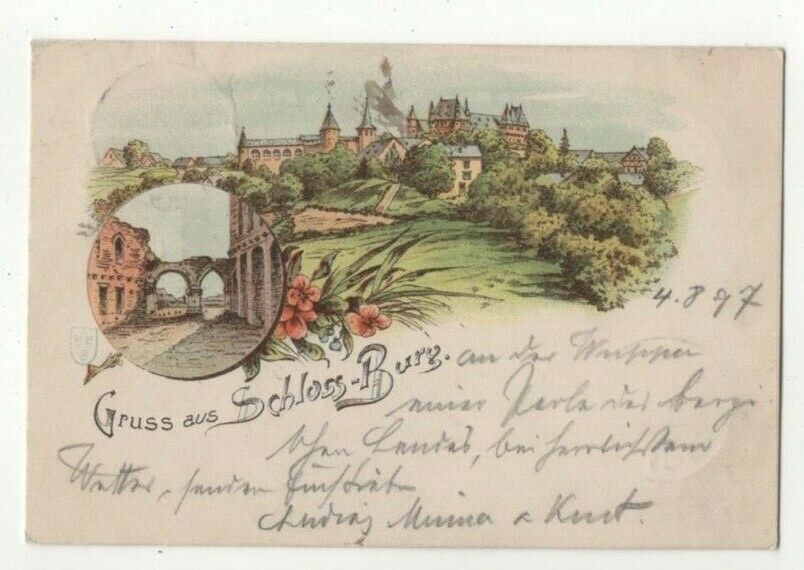 4.8 97
Gruss aus Schloss-Burg. an der Wupper
einer Perle des bergi
schen Landes, bei herrlichstem
Wetter, senden
Minna & Kurt.